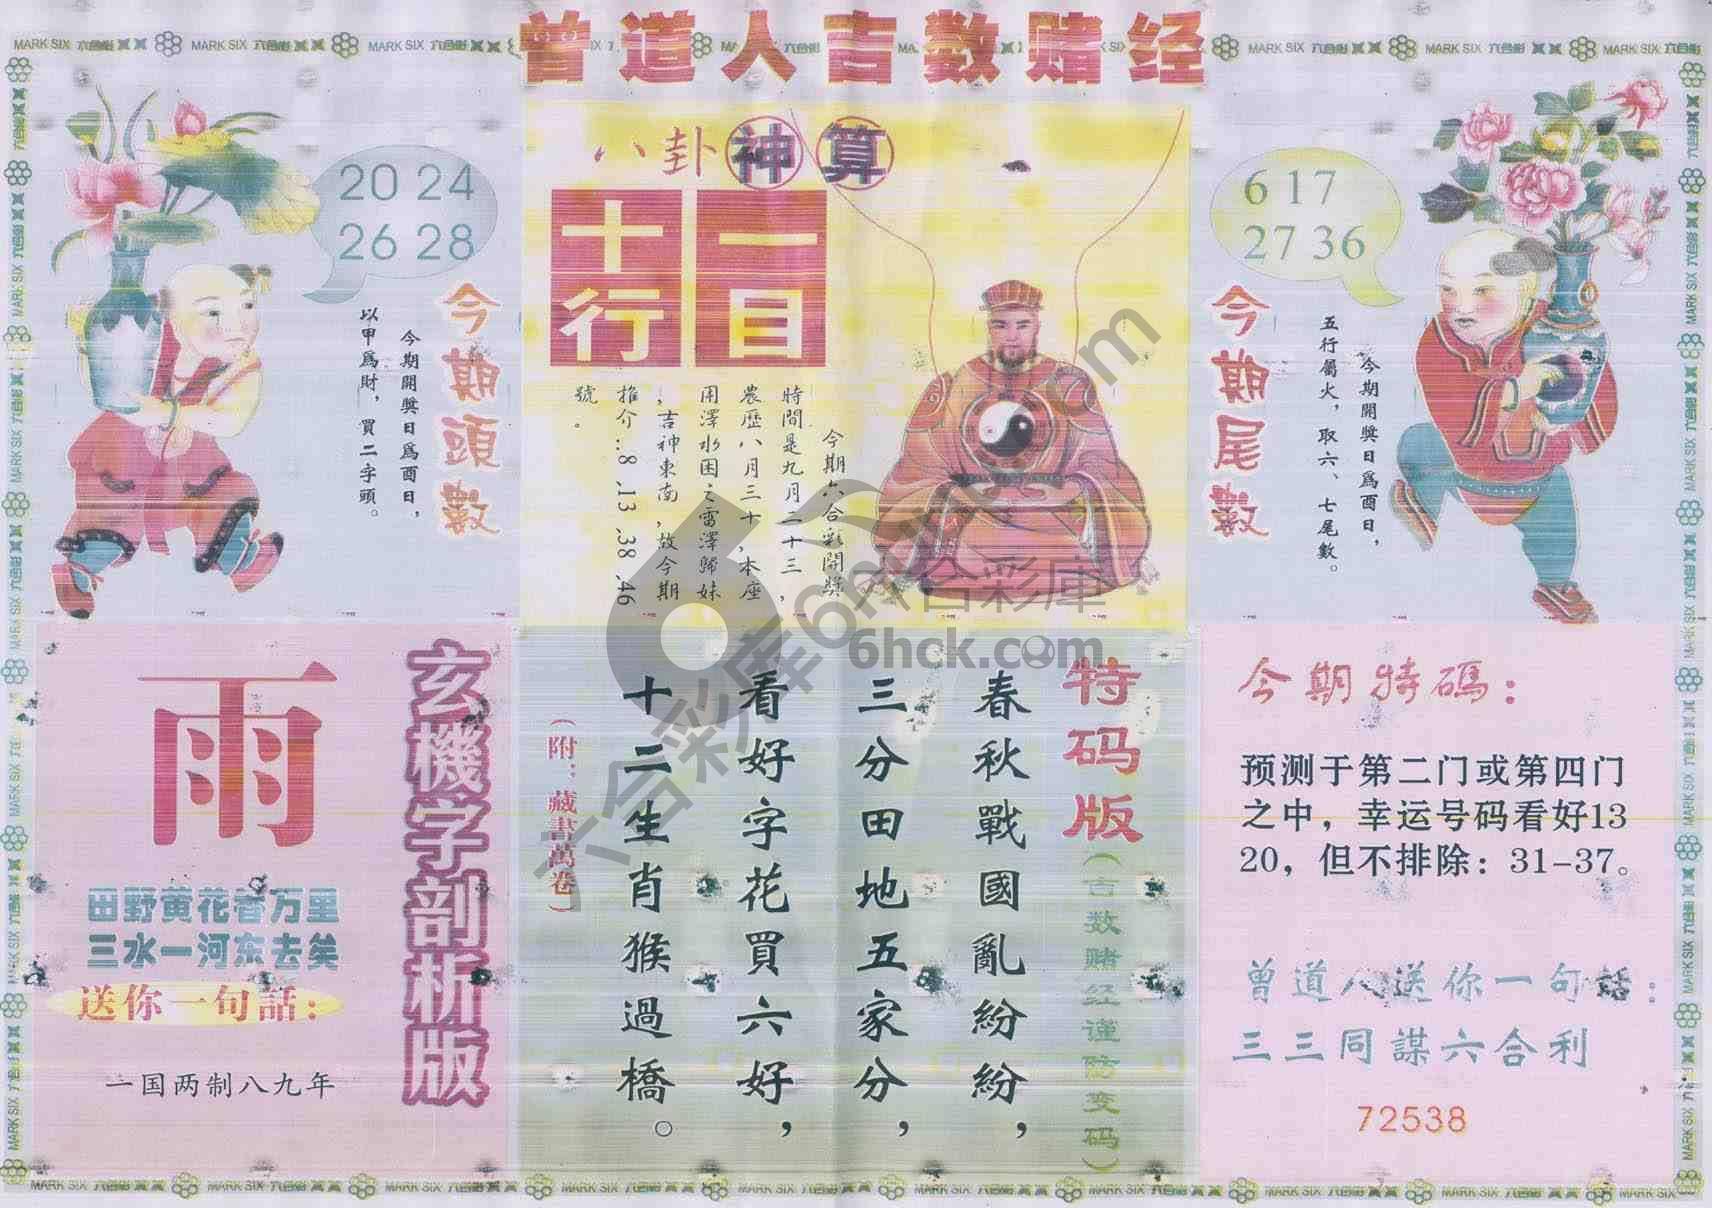 曾道人吉数赌经
MARK SIX 六合彩
20 24
26 28
今期頭數
今期開獎日爲酉日，
以甲爲財，買二字頭。
八卦神算
一目
十行
今期六合彩開獎
時間是九月二十三，
農歷八月三十，本座
用澤水困之雷澤歸妹
，吉神東南，故今期
推介..8.13.38.46
號。
6 17
27 36
今期尾數
今期開獎日爲酉日，
五行屬火，取六、七尾數。
玄機字剖析版
雨
田野黄花香万里
三水一河东去矣
送你一句話：
一国两制八九年
特码版
（吉数赌经谨防变码）
春秋戰國亂紛紛，
三分田地五家分，
看好字花買六好，
十二生肖猴過橋。
（附：藏書萬卷）
今期特碼：
预测于第二门或第四门
之中，幸运号码看好13
20，但不排除：31-37。
曾道人送你一句話：
三三同謀六合利
72538
六合彩库6hck.com
六合彩庫
6hck.com